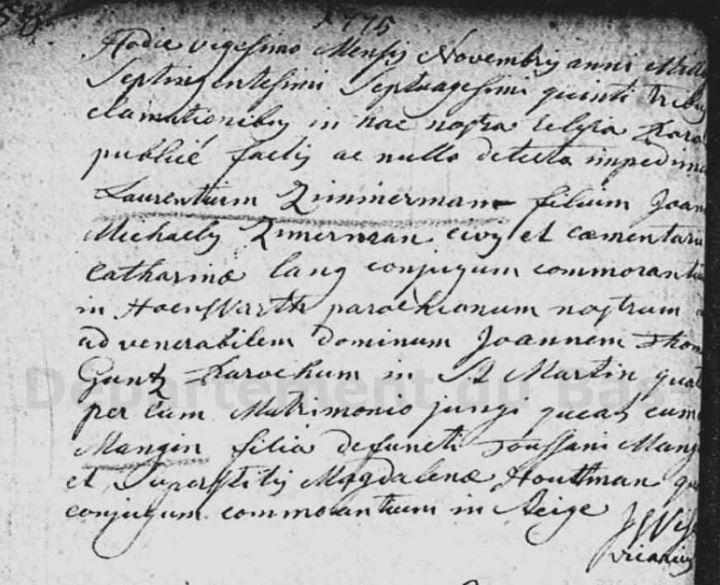 1775
Hodie vigesimo Mensis Novembris anni Mille
Septingentesimi Septuagesimi quinti tribus
clamationibus in hac nostra Eclesia Paro
publicé factis ac nullo detecto impedime
Laurentium Zimmermann filium Joan
Michaelis Zimerman civis et cæmentarii
Catharinæ lang conjugum commorantiu
in Hoenwarth parochianum nostrum
ad venerabilem dominum Joannem Thom
Gantz Parochum in St Martin quat
per eum Matrimonio jungi queat cum
Mangin filia defuncti Toussani Mang
et Superstitis Magdalenæ Houttman qu
conjugum commorantium in Steige
vicarius
Département du Bas-